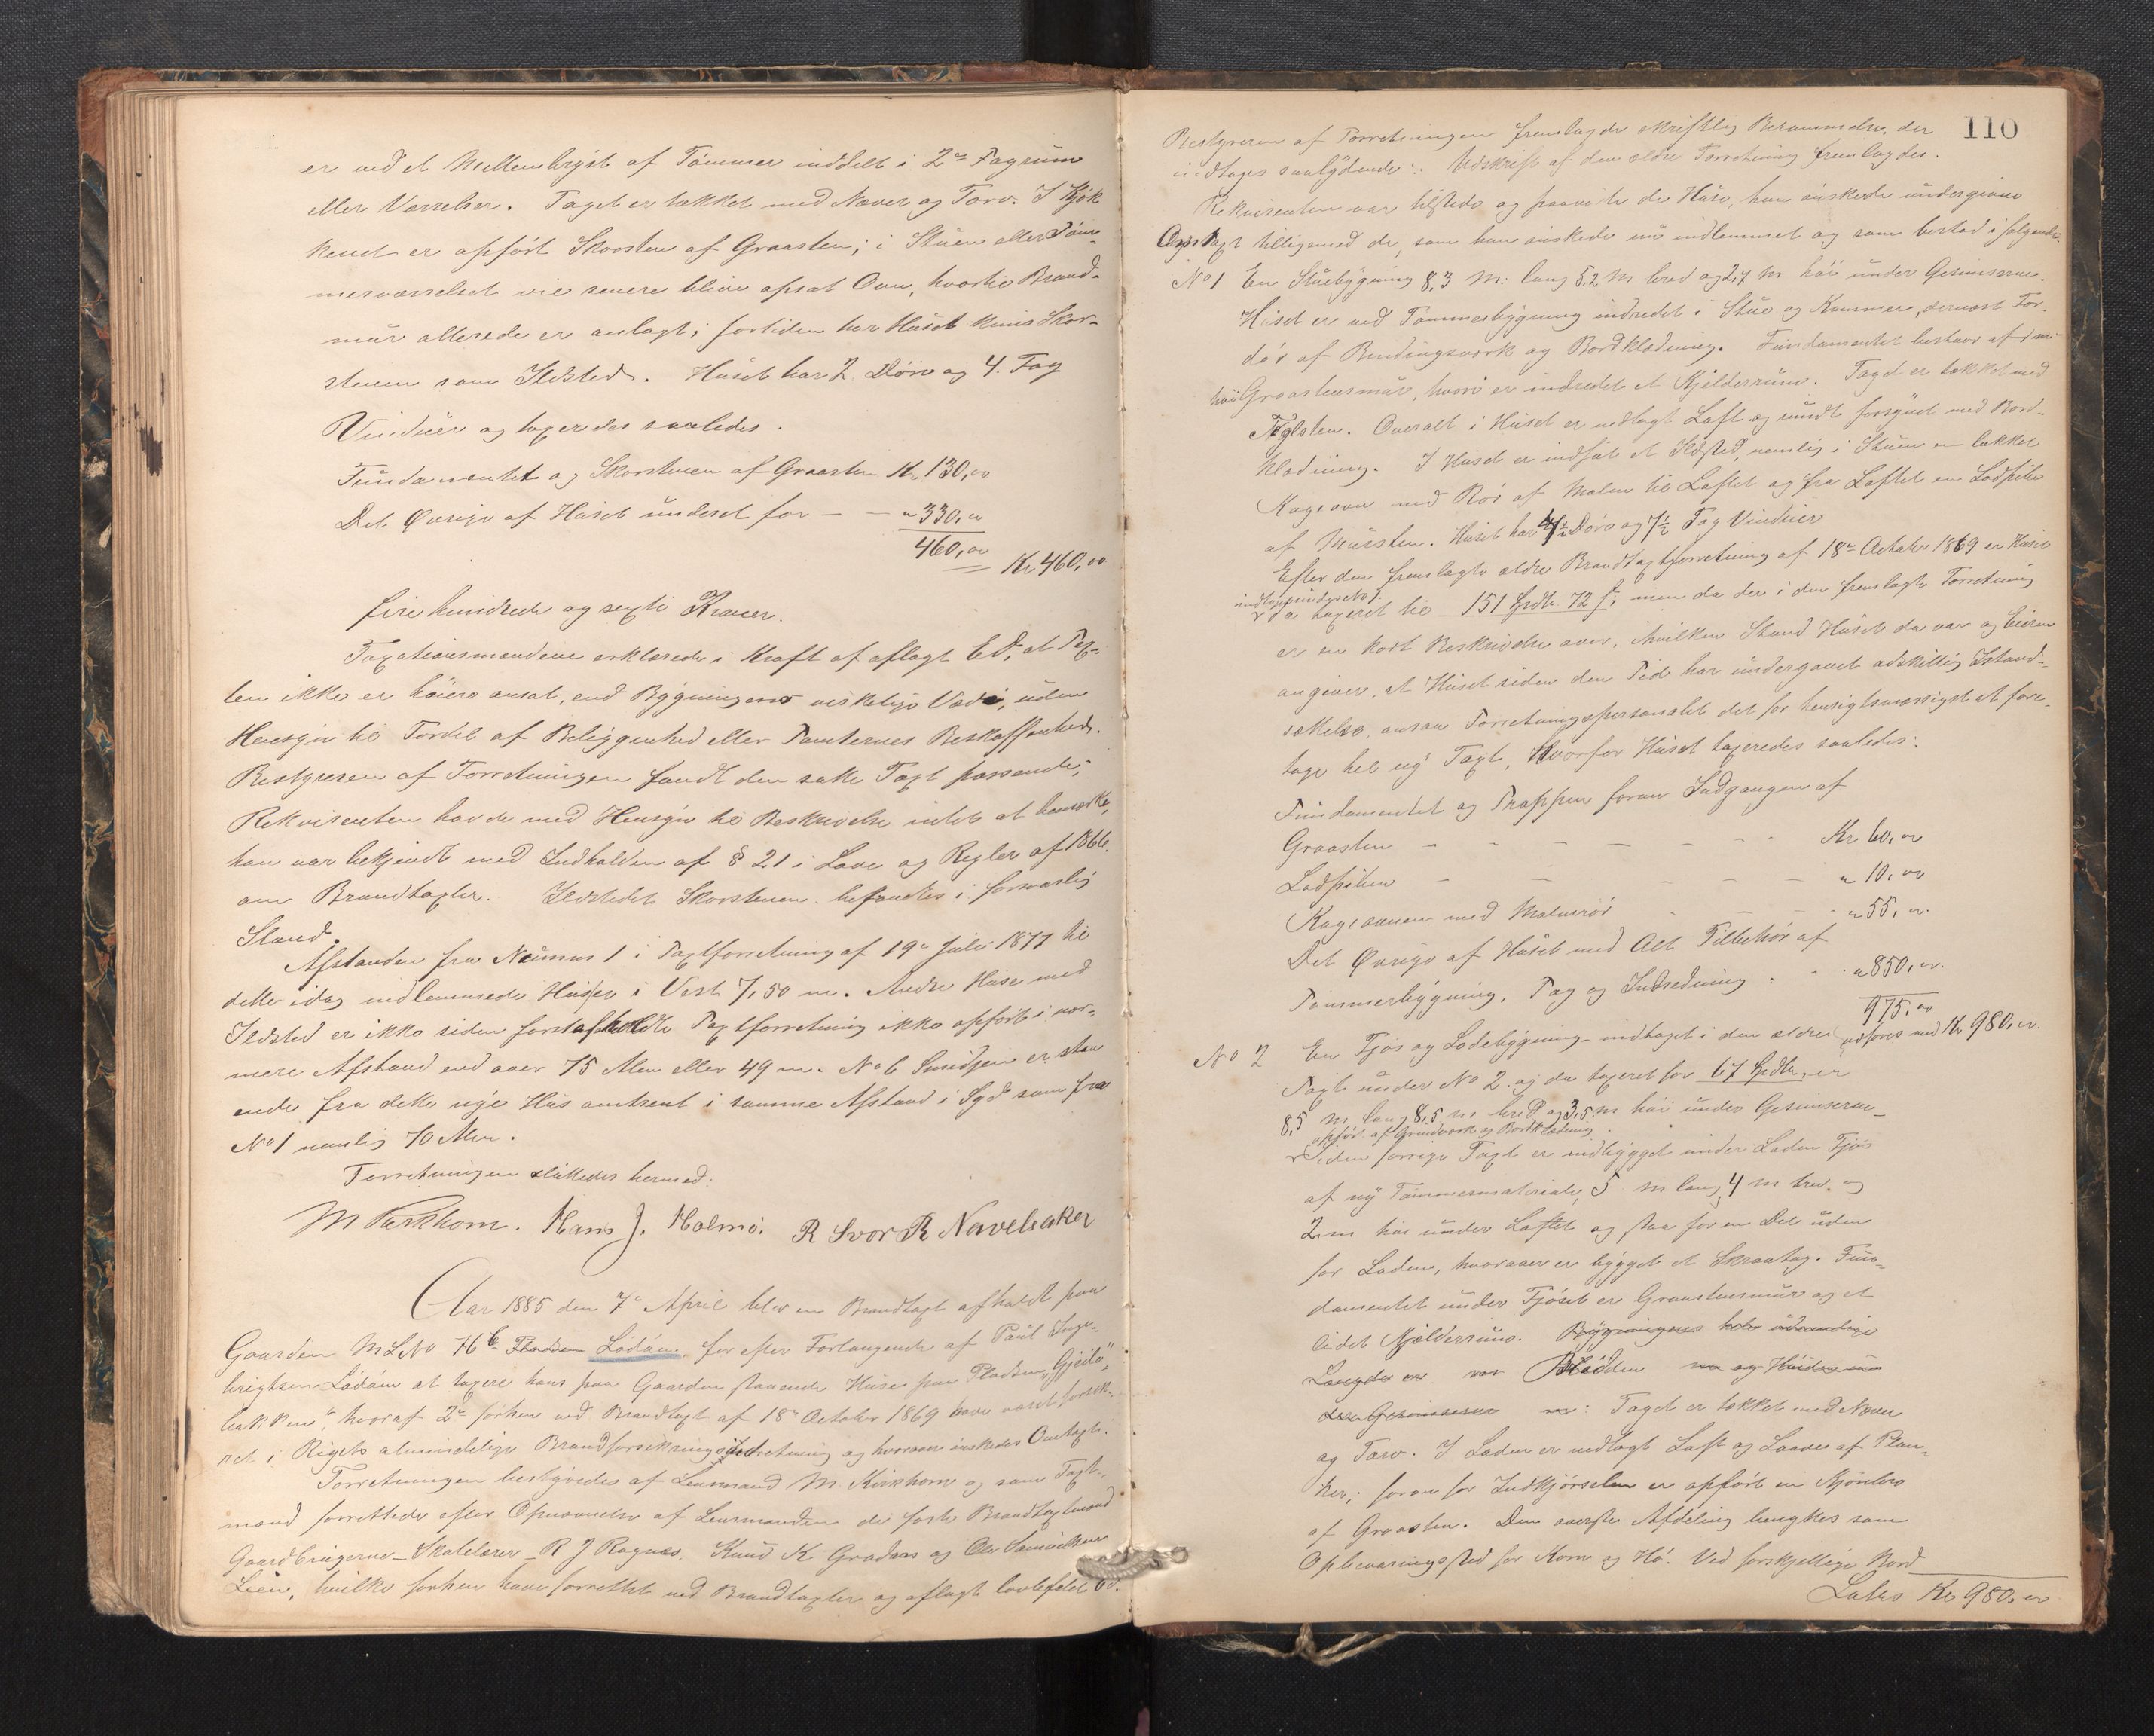 er ved et Mellembryst af Tømmer inddelt i 2de Fagrum
eller Værelser. Taget er tækket med Næver og Torv. I Kjøk
kenet er opført Skorsten af Graasten; i Stuen eller Døm-
mesværelset vil senere blive opsat Ovn, hvortil Brand-
mur allerede er anlagt; for tiden har Huset kuns Skor-
stenen som Ildsted. Huset har 2 Døre og 4 Fag
Vinduer og taxeredes saaledes.
Fundamentet og Skorstenen af Graasten Kr. 130,00
Det Øvrige af Huset underet for — — " 330,00
460,00 Kr 460,00
fire hundrede og sexti Kroner.
Taxationsmændene erklærede i Kraft af aflagt Ed, at Tax-
ten ikke er høiere ansat, end Bygningens virkelige Værdi, uden
Hensyn til Fordel af Beliggenhed eller Tomternes Beskaffenhed.
Bestyreren af Forretningen fandt den satte Taxt passende;
Rekvirenten havde med Hensyn til Beskrivelse intet at bemærke,
han var bekjendt med Indholden af § 21 i Love og Regler af 1866.
om Brandtaxter. Ildstedet Skorstenen befandtes i forsvarlig
Stand.
Afstanden fra Numer 1 i Taxtforretning af 19de Juli 1877 til
dette idag indlemmede Huus er i Vest 7,50 m. Andre Huse med
Ildsted er ikke siden først afholdte Taxtforretning ikke opført i nær-
mere Afstand end over 75 Alen eller 49 m. No 6 Smidjen er staa
ende fra dette nye Hus omtrent i samme Afstand i Syd som fra
No 1 nemlig 70 Alen.
Forretningen sluttedes hermed.
M Kirkhorn. Hans J. Holmø. R Ivor R Navelsaker
Aar 1885 den 7de April blev en Brandtaxt afholdt paa
Gaarden M L No 46 Lødøen for efter Forlangende af Paul Inge-
brigtsen Lødøen at taxere hans paa Gaarden staaende Huse paa Pladsen "Gjeilo-
bakken", hvoraf 2de forhen ved Brandtaxt af 18de October 1869 have været forsik-
ret i Rigets almindelige Brandforsikringsindretning og hvorom ønskedes Omtaxt.
Forretningen bestyredes af Lensmand M. Kirkhorn og som Taxt-
mænd forrettede efter Opnævnelse af Lensmanden de faste Brandtaxtmænd
Gaardbrugerne Skolelærer R J Ragnæs, Knud K Gradæns og Ole Samuelsen
Lien, hvilke forhen have forrettet ved Brandtaxter og aflagt lovbefalet Ed.
110
Bestyreren af Forretningen fremlagde skriftlig Berammelse, der
indtages saalydende: Udskrift af den ældre Forretning fremlagdes.
Rekvirenten var tilstede og paaviste de Huse, han ønskede undergivne
Omtaxt tilligemed de, som han ønskede nu indlemmet og som bestod i følgende:
No 1 En Stuebygning 8,3 m: lang 5,2 m bred og 2,7 m høi under Gesimserne.
Huset er ved Tømmerbygning indredet i Stue og Kammer, dernæst For-
dør af Bindingsværk og Bordklædning. Fundamentet bestaar af 1 m
høi Graastensmur, hvori er indredet et Kjelderrum. Taget er tækket med
Teglsten. Overalt i Huset er nedlagt Loft og rundt forsynet med Bord-
klædning. I Huset er indsat et Ildsted, nemlig i Stuen en lukket
Kogeovn med Rør af Malm til Loftet og fra Loftet en Lodpibe
af Mursten. Huset har 4½ Døre og 7½ Fag Vinduer
Efter den fremlagte ældre Brandtaxtforretning af 18de October 1869 er Huset
indtaget under No 1
v da taxeret til 151 Spdlr. 72 s, men da der i den fremlagte Forretning
er en kort Beskrivelse over, i hvilken Stand Huset da var og Eieren
angiver, at Huset siden den Tid har undergaaet adskillig Istand-
sættelse, ansaa Forretningspersonalet det for hensigtsmæssigst at fore-
tage hel ny Taxt, hvorfor Huset taxeredes saaledes:
Fundamentet og Trappen foran Indgangen af
Graasten — — — — — Kr 60,00
Lodpiben — — — — — " 10,00
Kogeovnen med Malmrør — — " 55,00
Det Øvrige af Huset med Alt Tilbehør af
Tømmerbygning, Tag og Indredning . . " 850,00
975,00
udføres med Kr 980,00.
No 2 En Fjøs og Ladebygning indtaget i den ældre
Taxt under No 2 og da taxeret for 67 Spdlr, er
8,5 m lang 8,5 m bred og 3,5 m høi under Gesimserne
opført af Grindværk og Bordklædning
v Siden forrige Taxt er indbygget under Laden Fjøs
af ny Tømmermateriale, 5 m lang, 4 m bred og
2 m høi under Loftet og staa for en Del uden
for Laden, hvorover er bygget et Skraatag. Fun-
damentet under Fjøset er Graastensmur og et
lidet Kjelderrum. Bygningens hele udvendige
Længde er Bredden og Høiden
Gesimserne Taget er tækket med Næver
og Torv. I Laden er nedlagt Loft og Laaver af Plan-
ker; foran for Indkjørselen er opført en Kjørebro
af Graasten. Den øverste Afdeling benyttes som
Opbevaringsted for Korn og Hø. Ved forskjellige Bord
Lates Kr 980,00